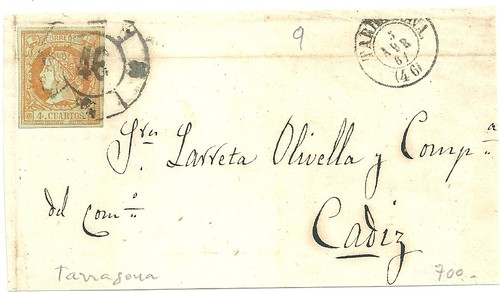 CORREOS
4 CUARTOS.
46
9
TARRAGONA.
5
ABR
61
(46)
Sres. Larreta Olivella y Comp.a
del Com.o
Cadiz
Tarragona
700.-